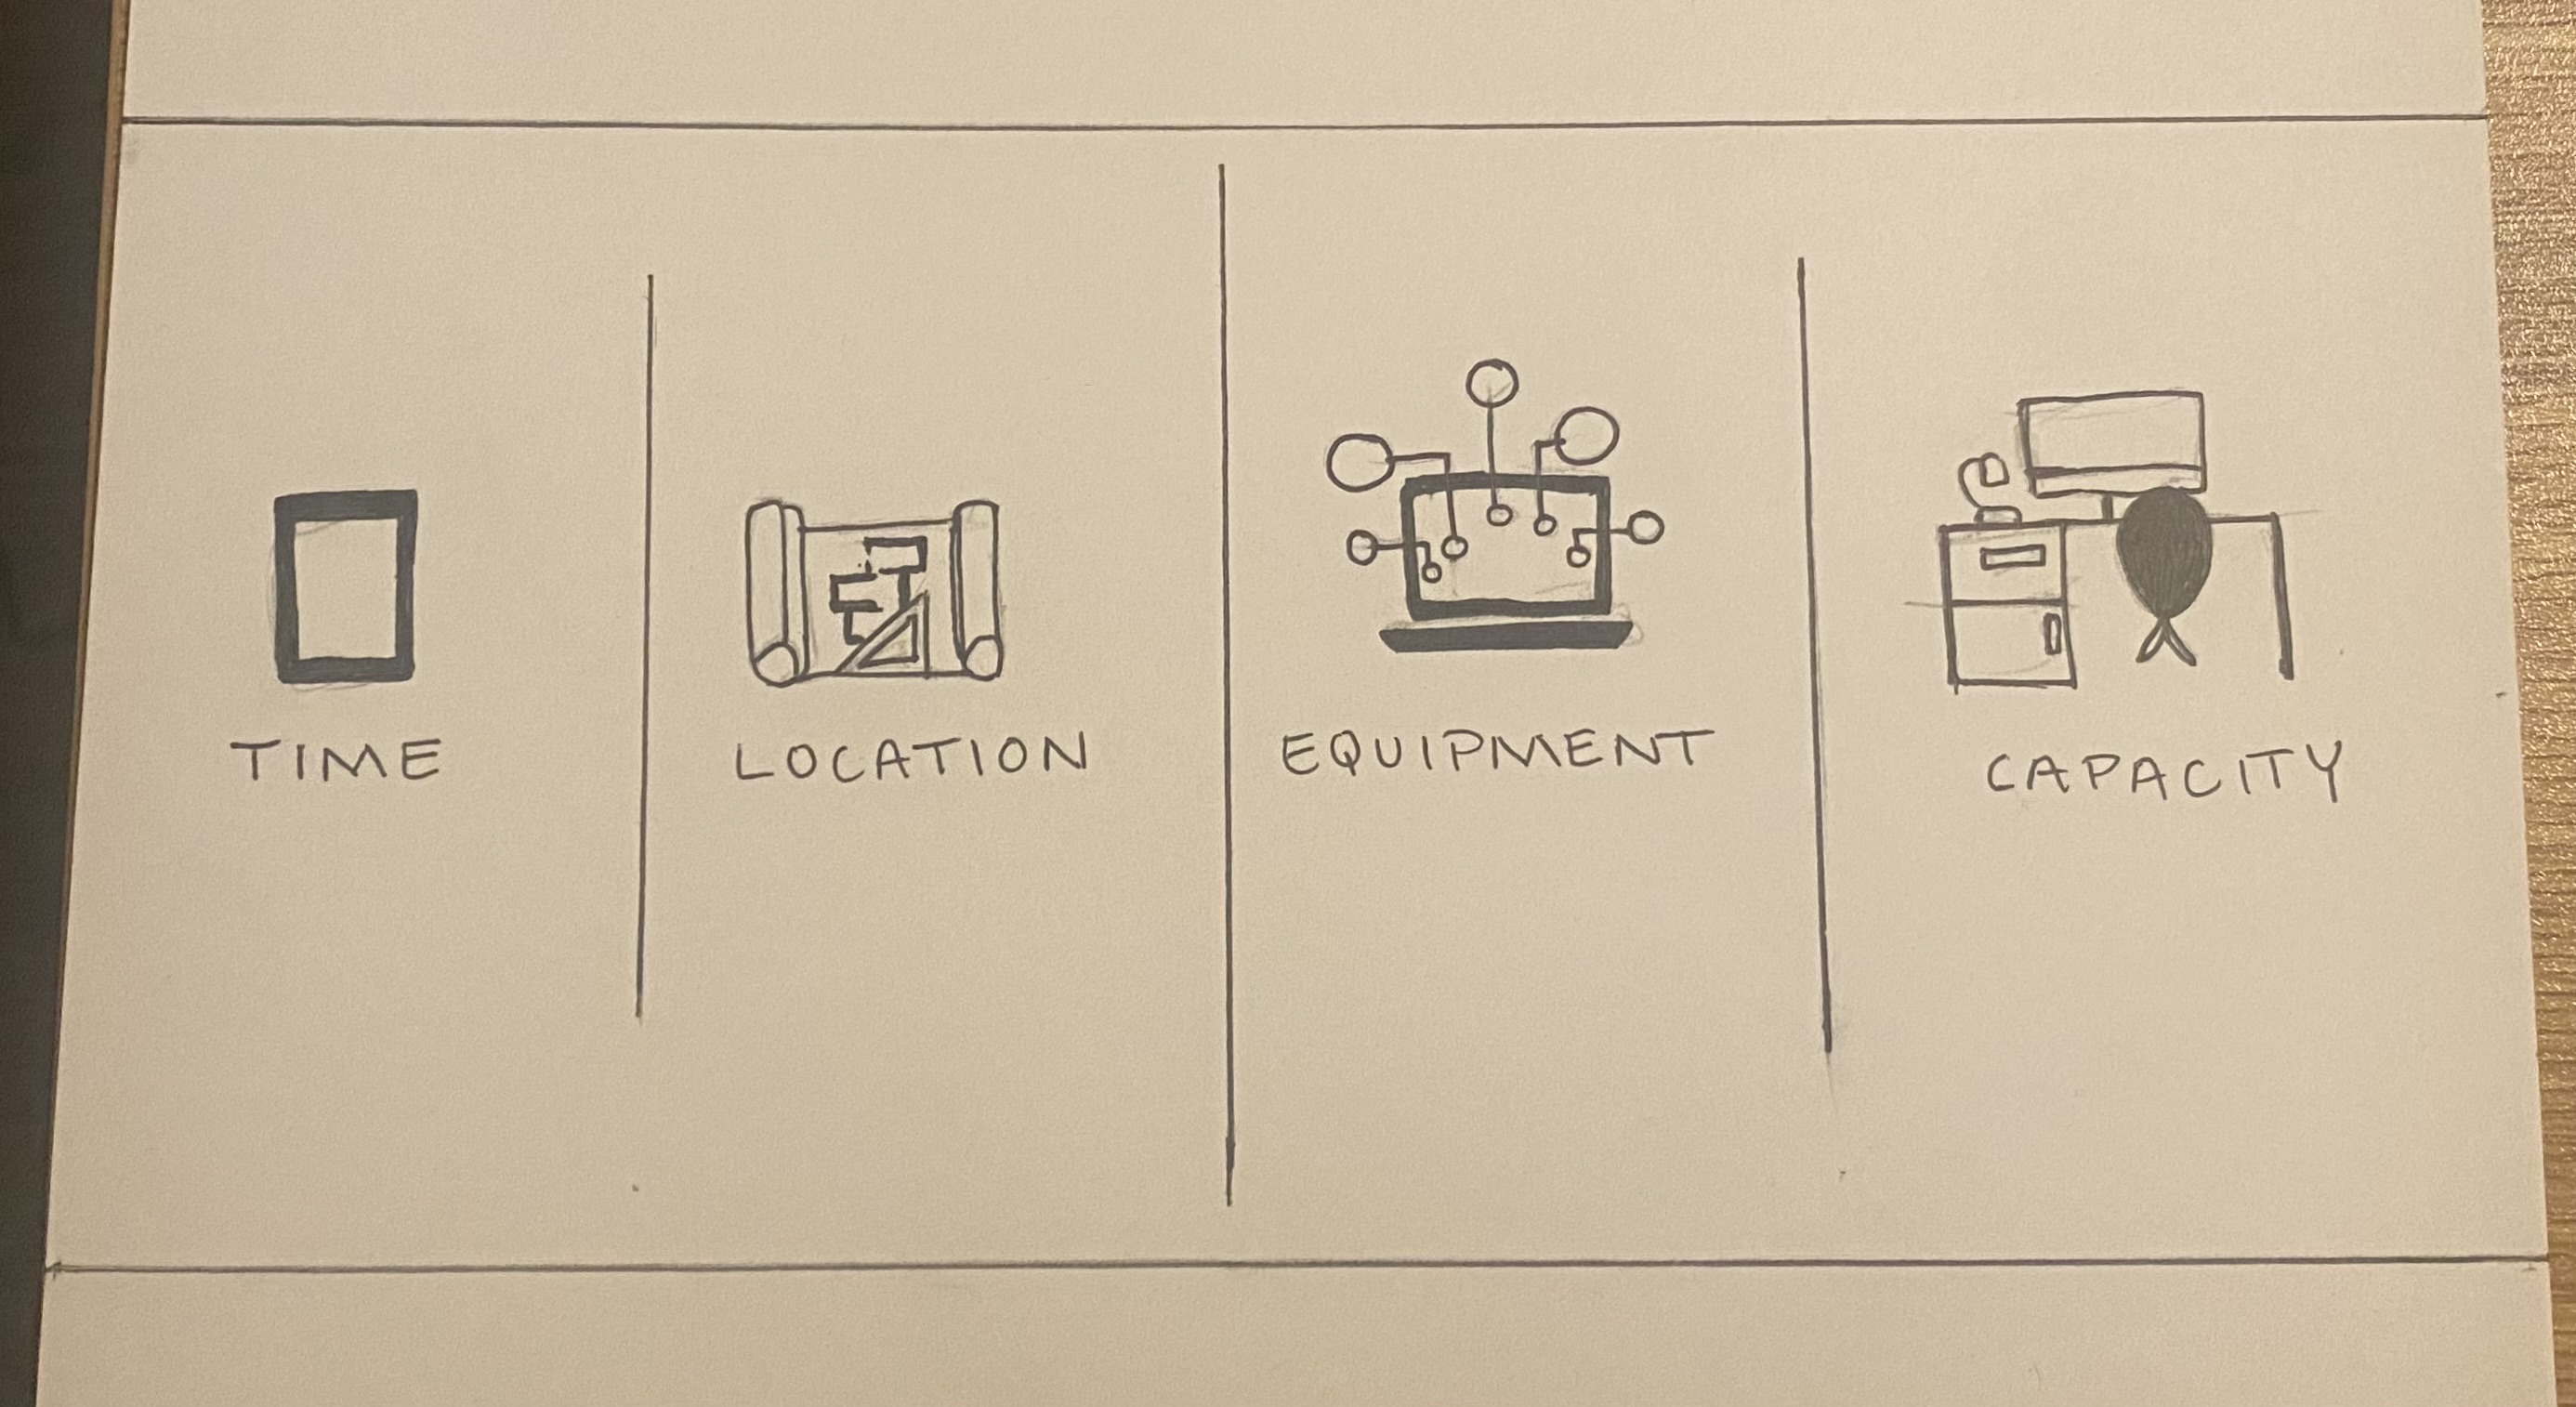 TIME
LOCATION
EQUIPMENT
CAPACITY